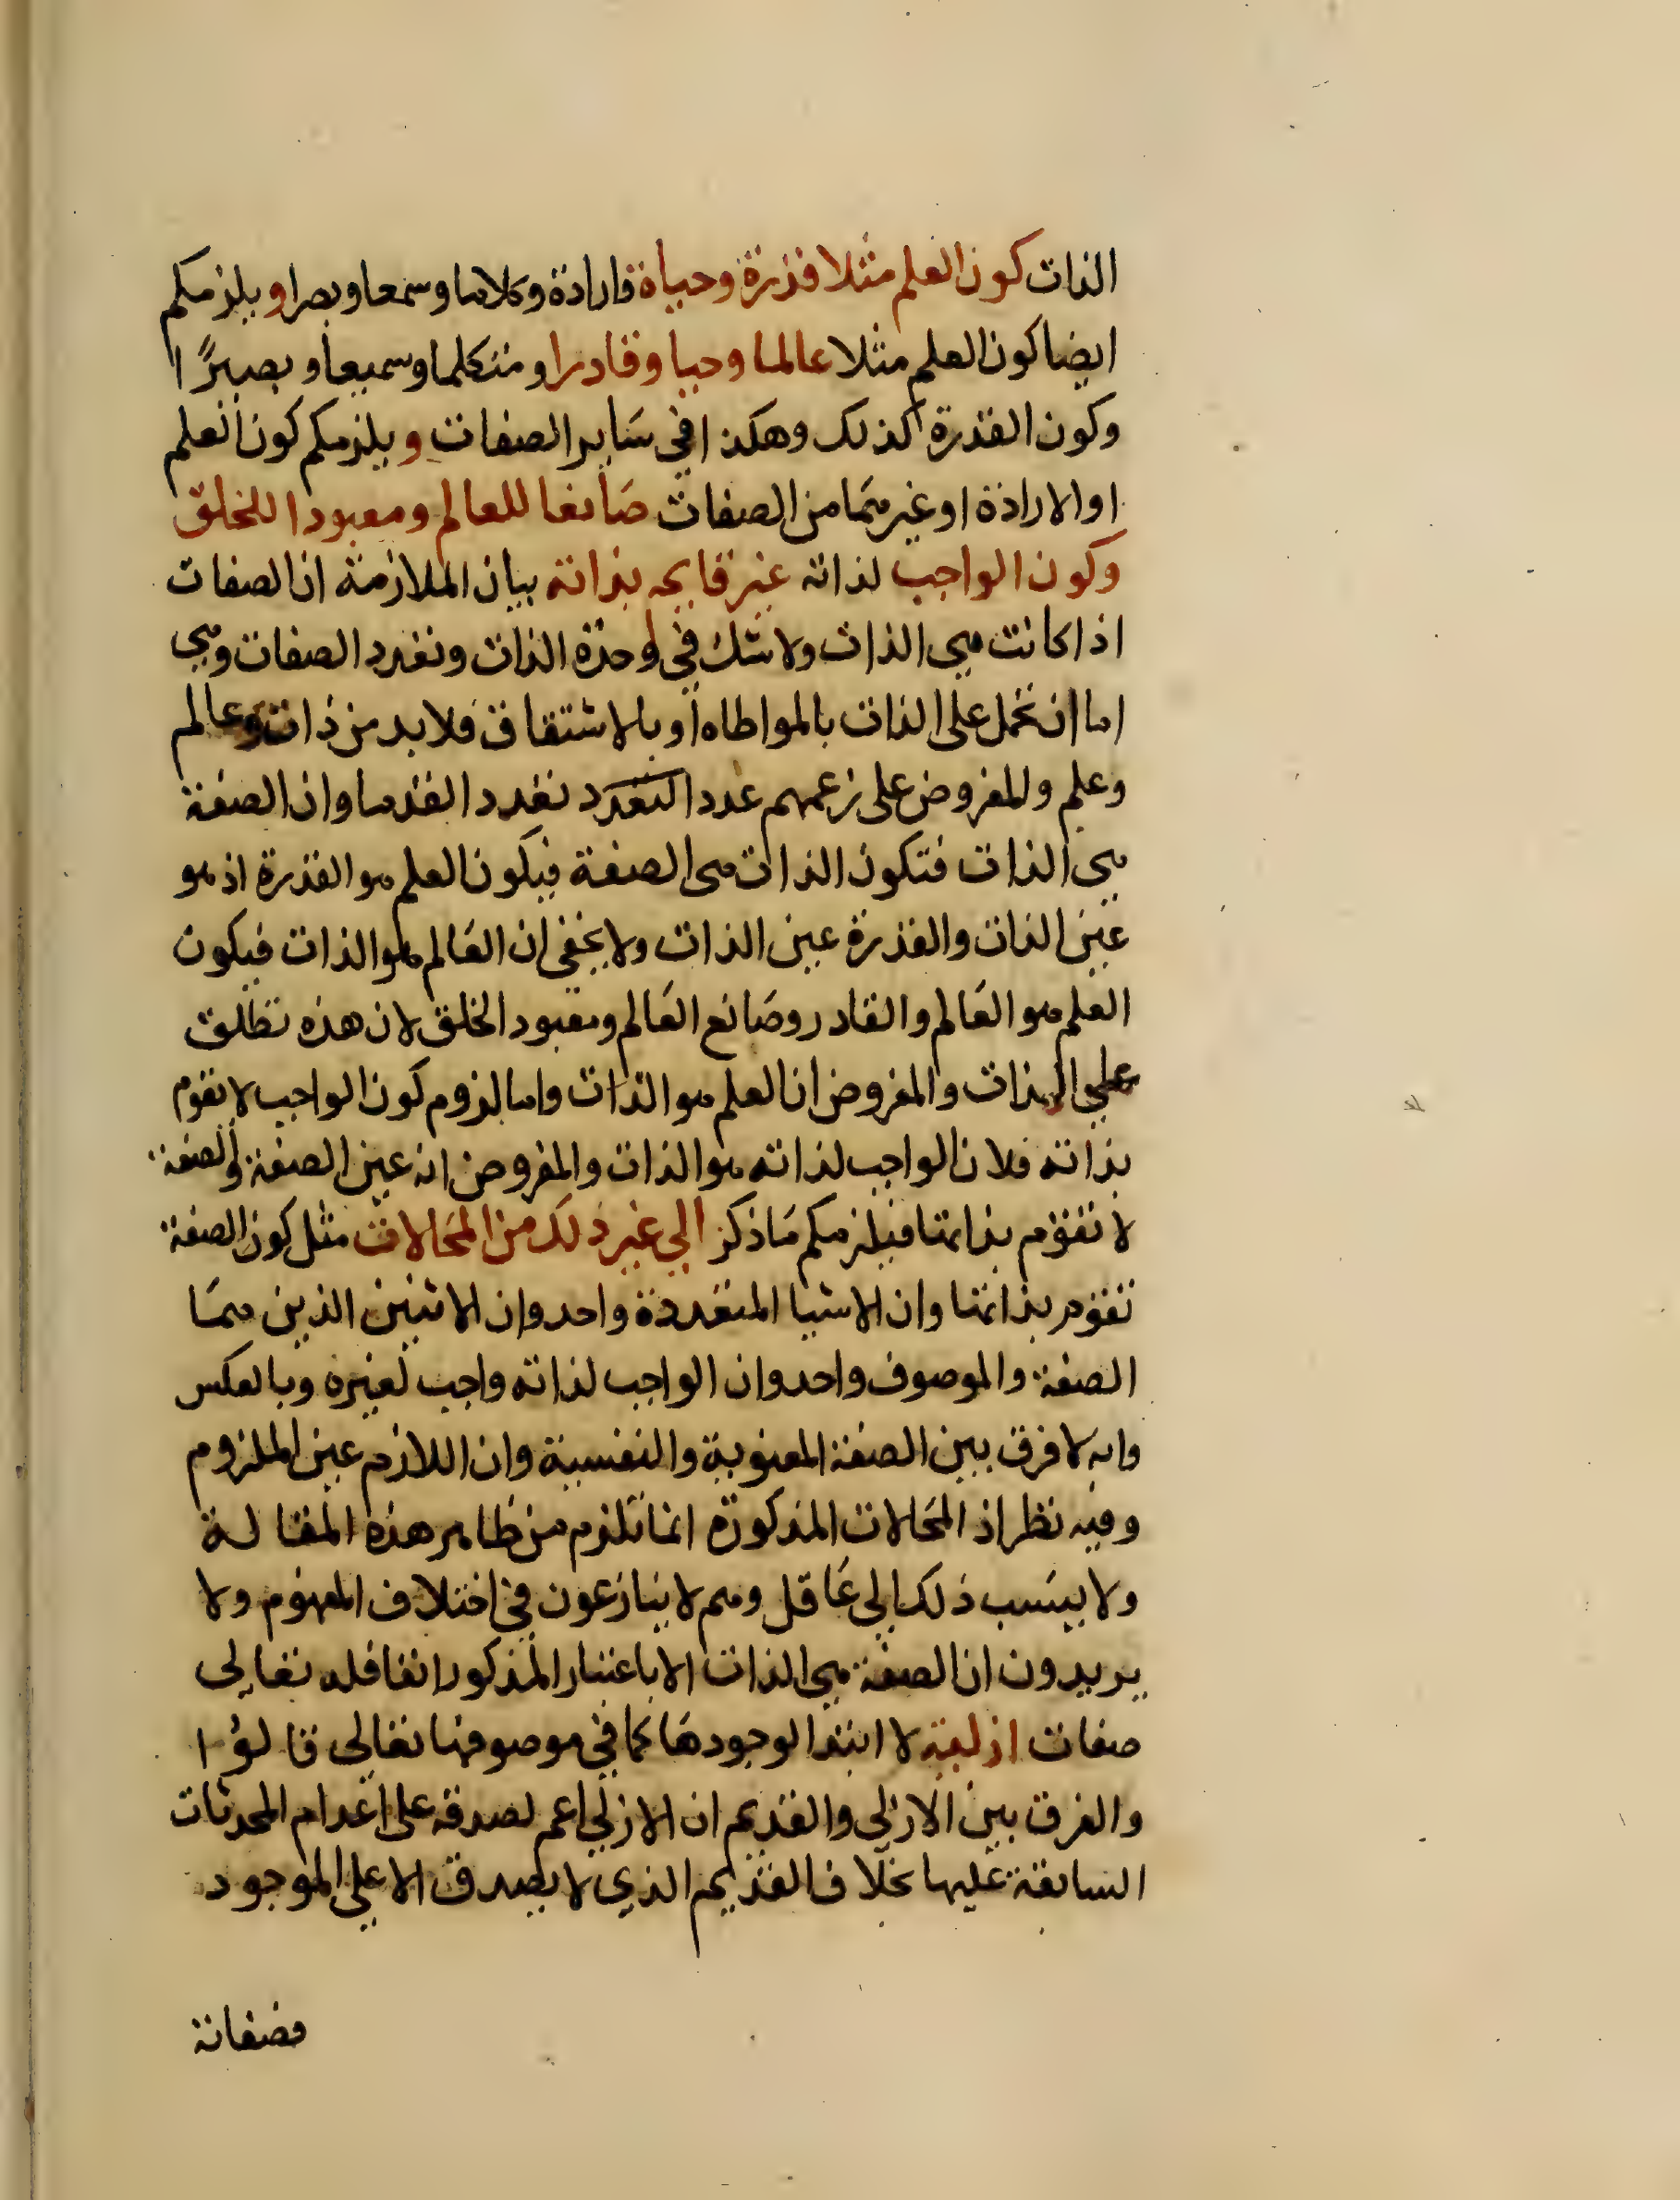 الذات كون العلم مثلا قدرة وحياة وارادة وكلاما وسمعا وبصرا ويلزمكم
ايضا كون العلم مثلا عالما وحيا وقادرا ومتكلما وسميعا وبصيرًا
وكون القدرة كذلك وهكذا في سَاير الصفات ويلزمكم كون العلم
او الارادة او غيرهمَا من الصفات صَانعا للعالم ومعبودا للخلق
وكون الواجب لذاته غير قايم بذاته بيان الملازمة ان الصفات
اذا كانت هي الذات ولا شك في وحدة الذات وتعدد الصفات وهي
اما ان تحمل على الذات بالمواطاه او بالاشتقاق فلابد من ذات وعالم
وعلم والمفروض على زعمهم عدد التعدد تعدد القدما وان الصفة
هي الذات فتكون الذات هى الصفة فيكون العلم هو القدرة اذ هو
عين الذات والقدرة عين الذات ولا يخفى ان العَالم هو الذات فيكون
العلم هو العَالم والقادر وصَانع العَالم ومعبود الخلق لان هذه تطلق
على الذات والمفروض ان العلم هو الذات واما لزوم كون الواجب لا يقوم
بذاته فلان الواجب لذاته هو الذات والمفروض انه عين الصفة والصفة
لا تقوم بذاتها فيلزمكم مَا ذكر الي غير ذلك من المحَالات مثل كون الصفة
تقوم بذاتها وان الاشيا المتعددة واحد وان الاثنين الذين همَا
الصفة والموصوف واحد وان الواجب لذاته واجب لغيره وبالعكس
وانه لا فرق بين الصفة المعنوية والنفسية وان اللازم عين الملزوم
وفيه نظر اذ المحَالات المذكورة انما تلزم من ظاهر هذه المقالة
ولا ينسَب ذلك الي عَاقل وهم لا ينازعون في اختلاف المفهوم ولا
يريدون ان الصفة هي الذات الا باعتبار المذكور انفا فله تعالى
صفات ازلية لا ابتدا لوجودهَا كما في موصوفها تعالى قالوا
والفرق بين الازلي والقديم ان الازلي اعم لصدقه على اعدام المحدثات
السابقة عليها بخلاف القديم الذي لا يصدق الا علي الموجود
فصفاته